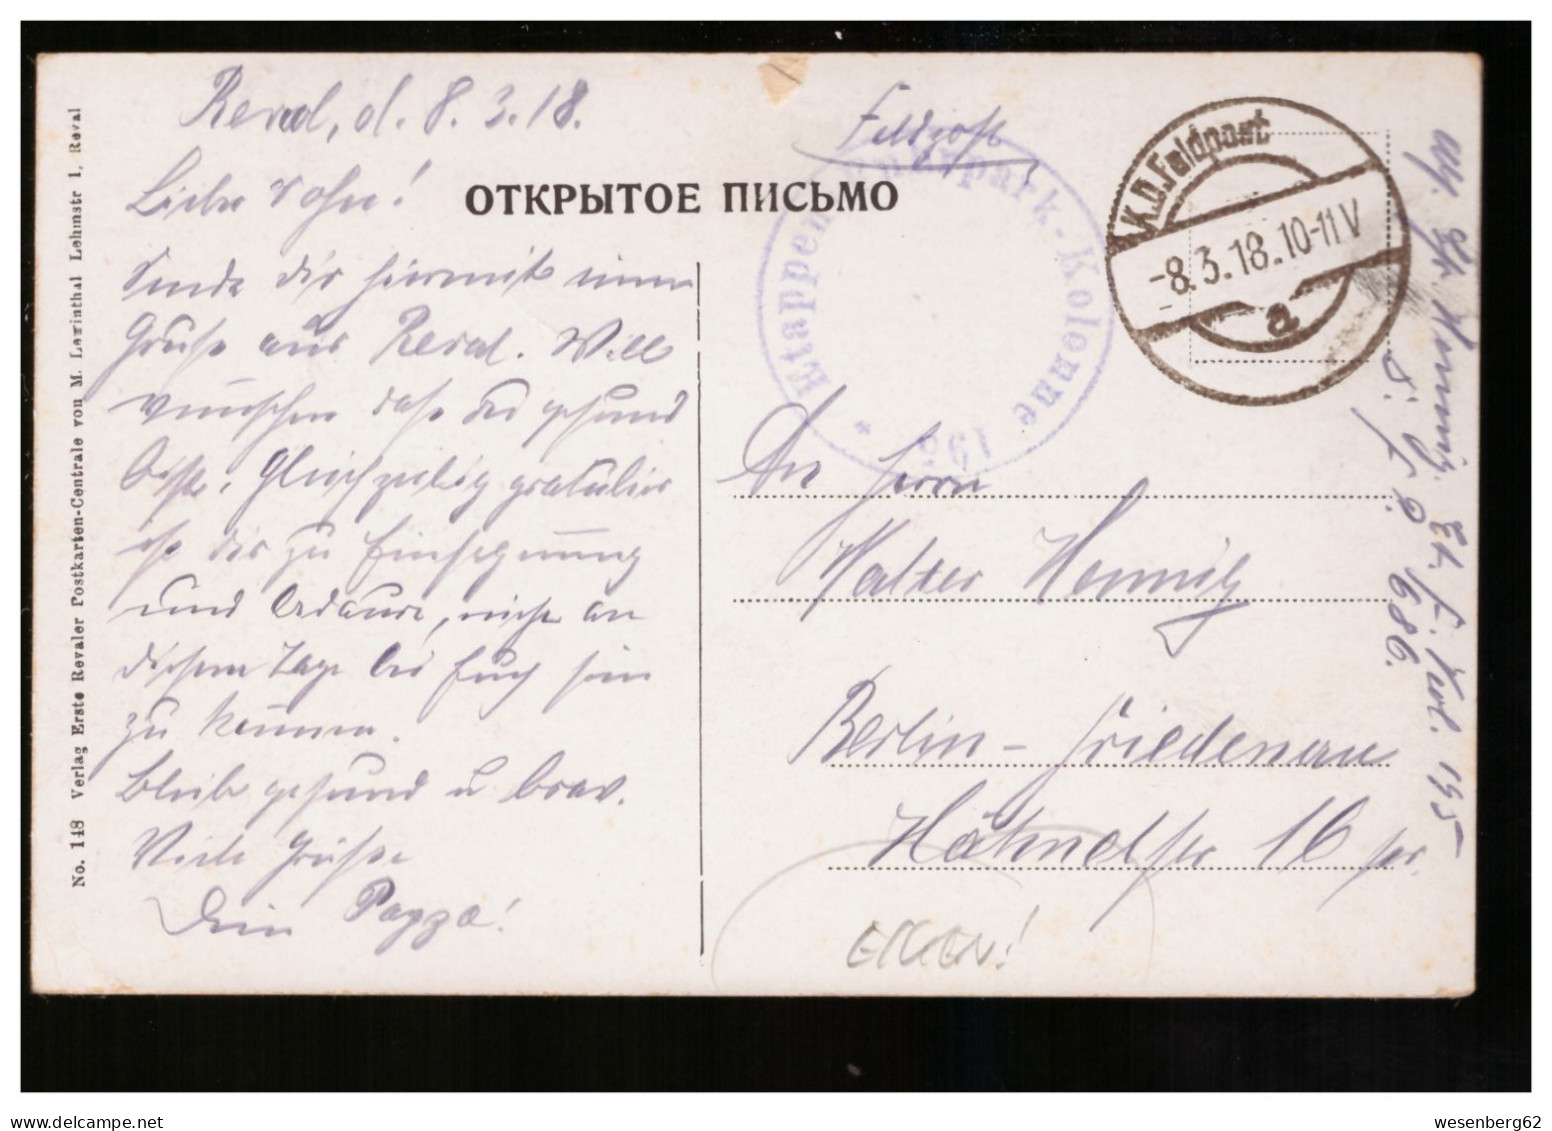 Reval, d. 8. 3. 18.
Lieber Sohn!
Sende dir hiermit einen
Gruß aus Reval. Will
wünschen daß du gesund
bist. Gleichzeitig gratuliere
ich dir zu Einsegnung
und bedaure, nicht an
diesem Tage bei Euch sein
zu können.
Bleib gesund u brav.
Viele Grüße
Dein Pappa!
No. 148 Verlag Erste Revaler Postkarten-Centrale von M. Lewinthal Lehmstr 1, Reval
ОТКРЫТОЕ ПИСЬМО
Feldpost
Etappen-Fuhrpark-Kolonne 195
K.D.Feldpost
-8.3.18.10-11V
a
An Herrn
Walter Hennig
Berlin-Friedenau
Hähnelstr 16 pr.
Hennig Et. F. Kol. 195
D. F. P. 686.